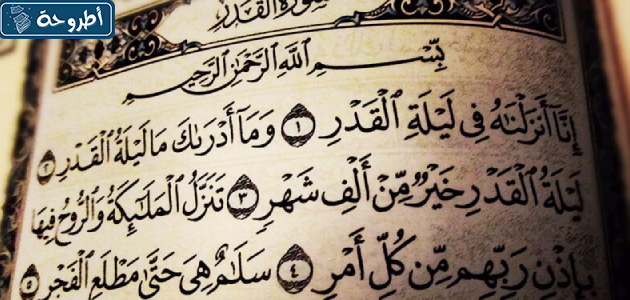 أطروحة
سُورَةُ القَدْرِ
بِّسْمِ ٱللَّهِ ٱلرَّحْمَٰنِ ٱلرَّحِيمِ
إِنَّآ أَنزَلْنَٰهُ فِى لَيْلَةِ ٱلْقَدْرِ ١ وَمَآ أَدْرَىٰكَ مَا لَيْلَةُ ٱلْقَدْرِ ٢
لَيْلَةُ ٱلْقَدْرِ خَيْرٌ مِّنْ أَلْفِ شَهْرٍ ٣ تَنَزَّلُ ٱلْمَلَٰٓئِكَةُ وَٱلرُّوحُ فِيهَا
بِإِذْنِ رَبِّهِم مِّن كُلِّ أَمْرٍ ٤ سَلَٰمٌ هِىَ حَتَّىٰ مَطْلَعِ ٱلْفَجْرِ ٥